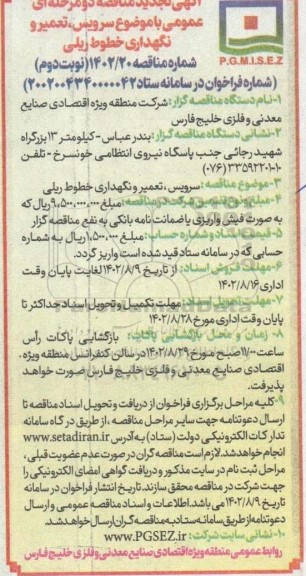 آگهی تجدید مناقصه دو مرحله ای
عمومی با موضوع سرویس، تعمیر و
نگهداری خطوط ریلی
P.G.M.I.S.E.Z
شماره مناقصه ۱۴۰۲/۲۰ (نوبت دوم)
(شماره فراخوان در سامانه ستاد ۲۰۰۲۰۰۴۳۴۰۰۰۰۰۴۲)
۱-نام دستگاه مناقصه گزار: شرکت منطقه ویژه اقتصادی صنایع
معدنی و فلزی خلیج فارس
۲-نشانی دستگاه مناقصه گزار: بندر عباس-کیلومتر ۱۳ بزرگراه
شهید رجائی جنب پاسگاه نیروی انتظامی خونسرخ - تلفن
۱۰-۳۳۵۹۲۲۰۱ (۰۷۶)
۳-موضوع مناقصه: سرویس، تعمیر و نگهداری خطوط ریلی
۴-مبلغ و نوع تضمین شرکت در مناقصه: مبلغ ۹,۵۰۰,۰۰۰,۰۰۰ ریال که
به صورت فیش واریزی یا ضمانت نامه بانکی به نفع مناقصه گزار
۵-قیمت اسناد و شماره حساب: مبلغ ۱,۵۰۰,۰۰۰ ریال به شماره
حسابی که در سامانه ستاد قید شده است واریز گردد.
۶-مهلت فروش اسناد: از تاریخ ۱۴۰۲/۸/۹ لغایت پایان وقت
اداری ۱۴۰۲/۸/۱۶
۷-مهلت تحویل اسناد: مهلت تکمیل و تحویل اسناد حداکثر تا
پایان وقت اداری مورخ ۱۴۰۲/۸/۲۸
۸- زمان و محل بازگشایی پاکات: بازگشایی پاکات رأس
ساعت ۱۱/۰۰ صبح مورخ ۱۴۰۲/۸/۲۹ در سالن کنفرانس منطقه ویژه
اقتصادی صنایع معدنی و فلزی خلیج فارس صورت خواهد
پذیرفت.
۹-کلیه مراحل برگزاری فراخوان از دریافت و تحویل اسناد مناقصه تا
ارسال دعوتنامه جهت سایر مراحل مناقصه، از طریق درگاه سامانه
تدارکات الکترونیکی دولت (ستاد) به آدرس www.setadiran.ir
انجام خواهد شد. لازم است مناقصه گران در صورت عدم عضویت قبلی،
مراحل ثبت نام در سایت مذکور و دریافت گواهی امضای الکترونیکی را
جهت شرکت در مناقصه محقق سازند. تاریخ انتشار فراخوان در سامانه
تاریخ ۱۴۰۲/۸/۹ می باشد. اطلاعات و اسناد مناقصه عمومی و ارسال
دعوتنامه از طریق سامانه ستاد به مناقصه گران ارسال خواهد شد.
۱۰-نشانی سایت شرکت: www.PGSEZ.ir
روابط عمومی منطقه ویژه اقتصادی صنایع معدنی و فلزی خلیج فارس